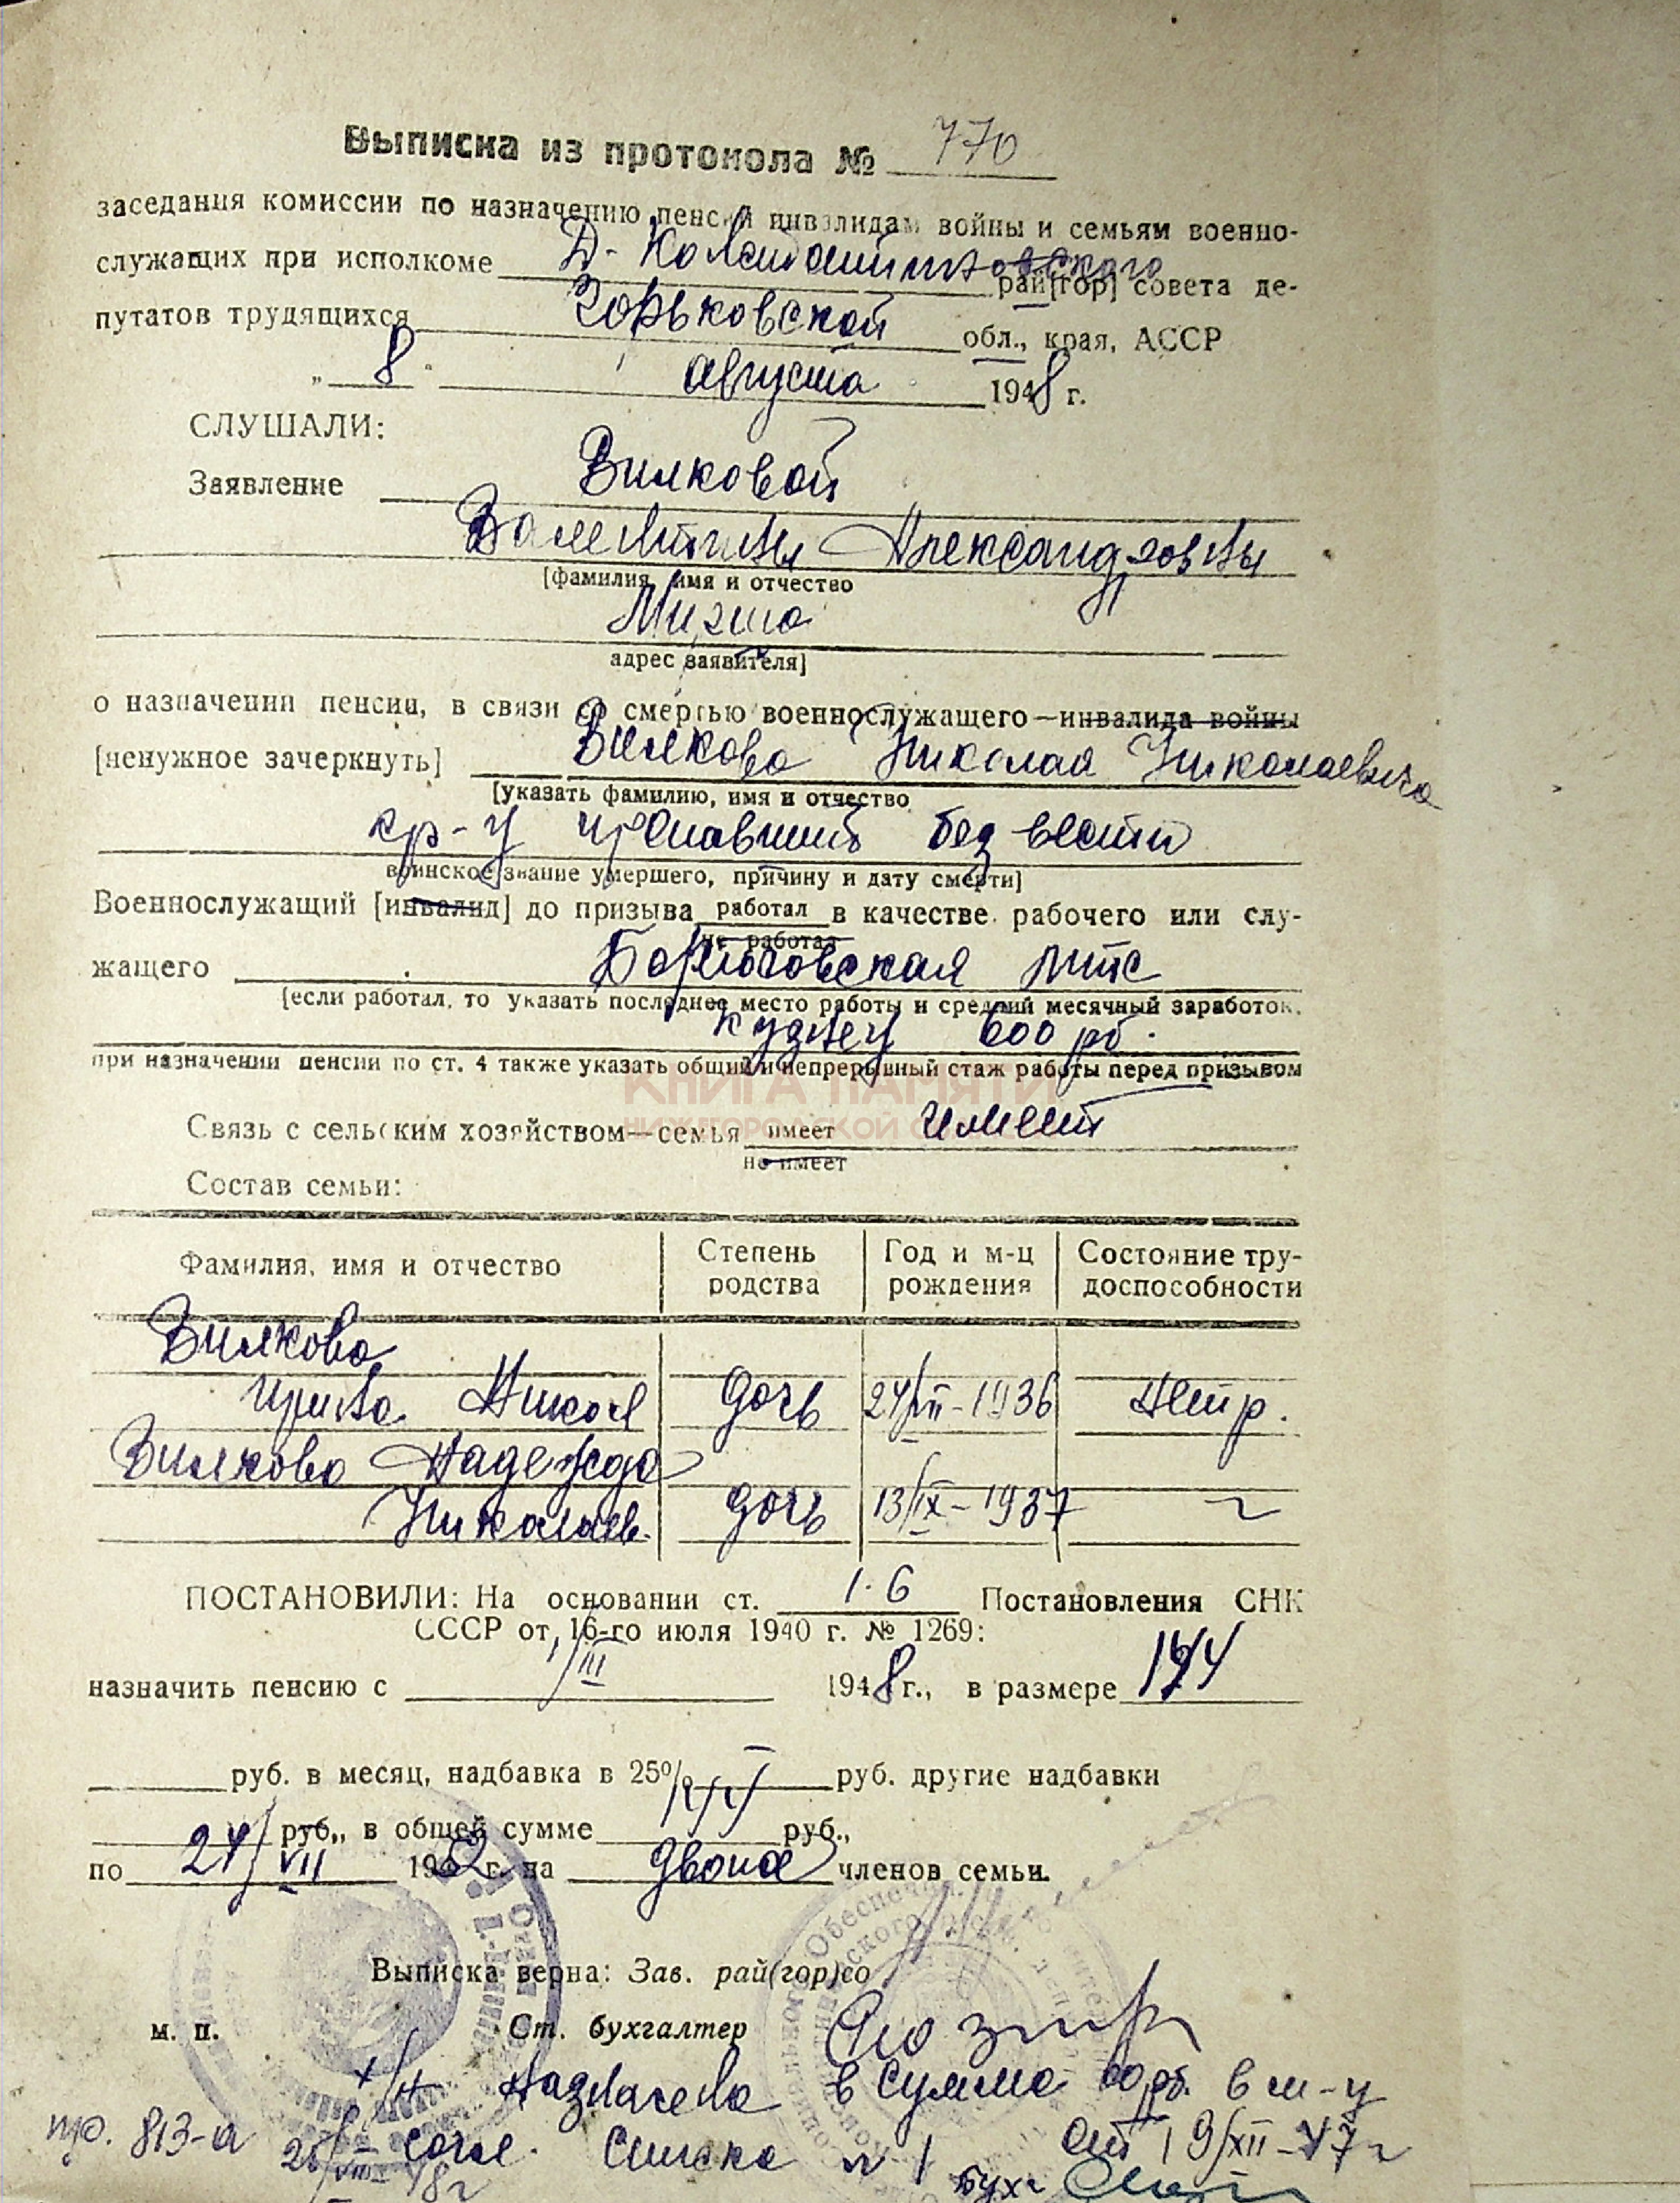 Выписка из протокола № 770
заседания комиссии по назначению пенсий инвалидам войны и семьям военно-
служащих при исполкоме Д-Константиновского рай[гор] совета де-
путатов трудящихся Горьковской обл., края, АССР
„ 8 " августа 1948 г.
СЛУШАЛИ:
Заявление Вилковой
Валентины Александровны
[фамилия, имя и отчество
Мигино
адрес заявителя]
о назначении пенсии, в связи со смертью военнослужащего—инвалида войны
[ненужное зачеркнуть] Вилкова Николая Николаевича
[указать фамилию, имя и отчество
кр-ц пропавший без вести
воинское звание умершего, причину и дату смерти]
Военнослужащий [инвалид] до призыва работал в качестве рабочего или слу-
не работал
жащего МТС
[если работал, то указать последнее место работы и средний месячный заработок,
кузнец 600 рб.
при назначении пенсии по ст. 4 также указать общий и непрерывный стаж работы перед призывом
КНИГА ПАМЯТИ
НИЖЕГОРОДСКОЙ
Связь с сельским хозяйством—семья имеет имеет
не имеет
Состав семьи:
Фамилия, имя и отчество Степень родства Год и м-ц рождения Состояние тру-доспособности
Вилкова
Ирина Никол дочь 24/VII-1936 нетр.
Вилкова Надежда
Николаев. дочь 13/IX-1937
ПОСТАНОВИЛИ: На основании ст. 1.6 Постановления СНК
СССР от 16-го июля 1940 г. № 1269:
назначить пенсию с 1/III 1948 г., в размере
руб. в месяц, надбавка в 25% руб. другие надбавки
руб., в общей сумме руб.,
по 24/VII 1952 г. на двоих членов семьи.
Выписка верна: Зав. рай(гор)со
м. п. Ст. бухгалтер
Назначена в сумме рб. в м-ц
пр. 813-а 25/VIII 48 г согл. списка № 1 от 19/XII-47 г
Бухг